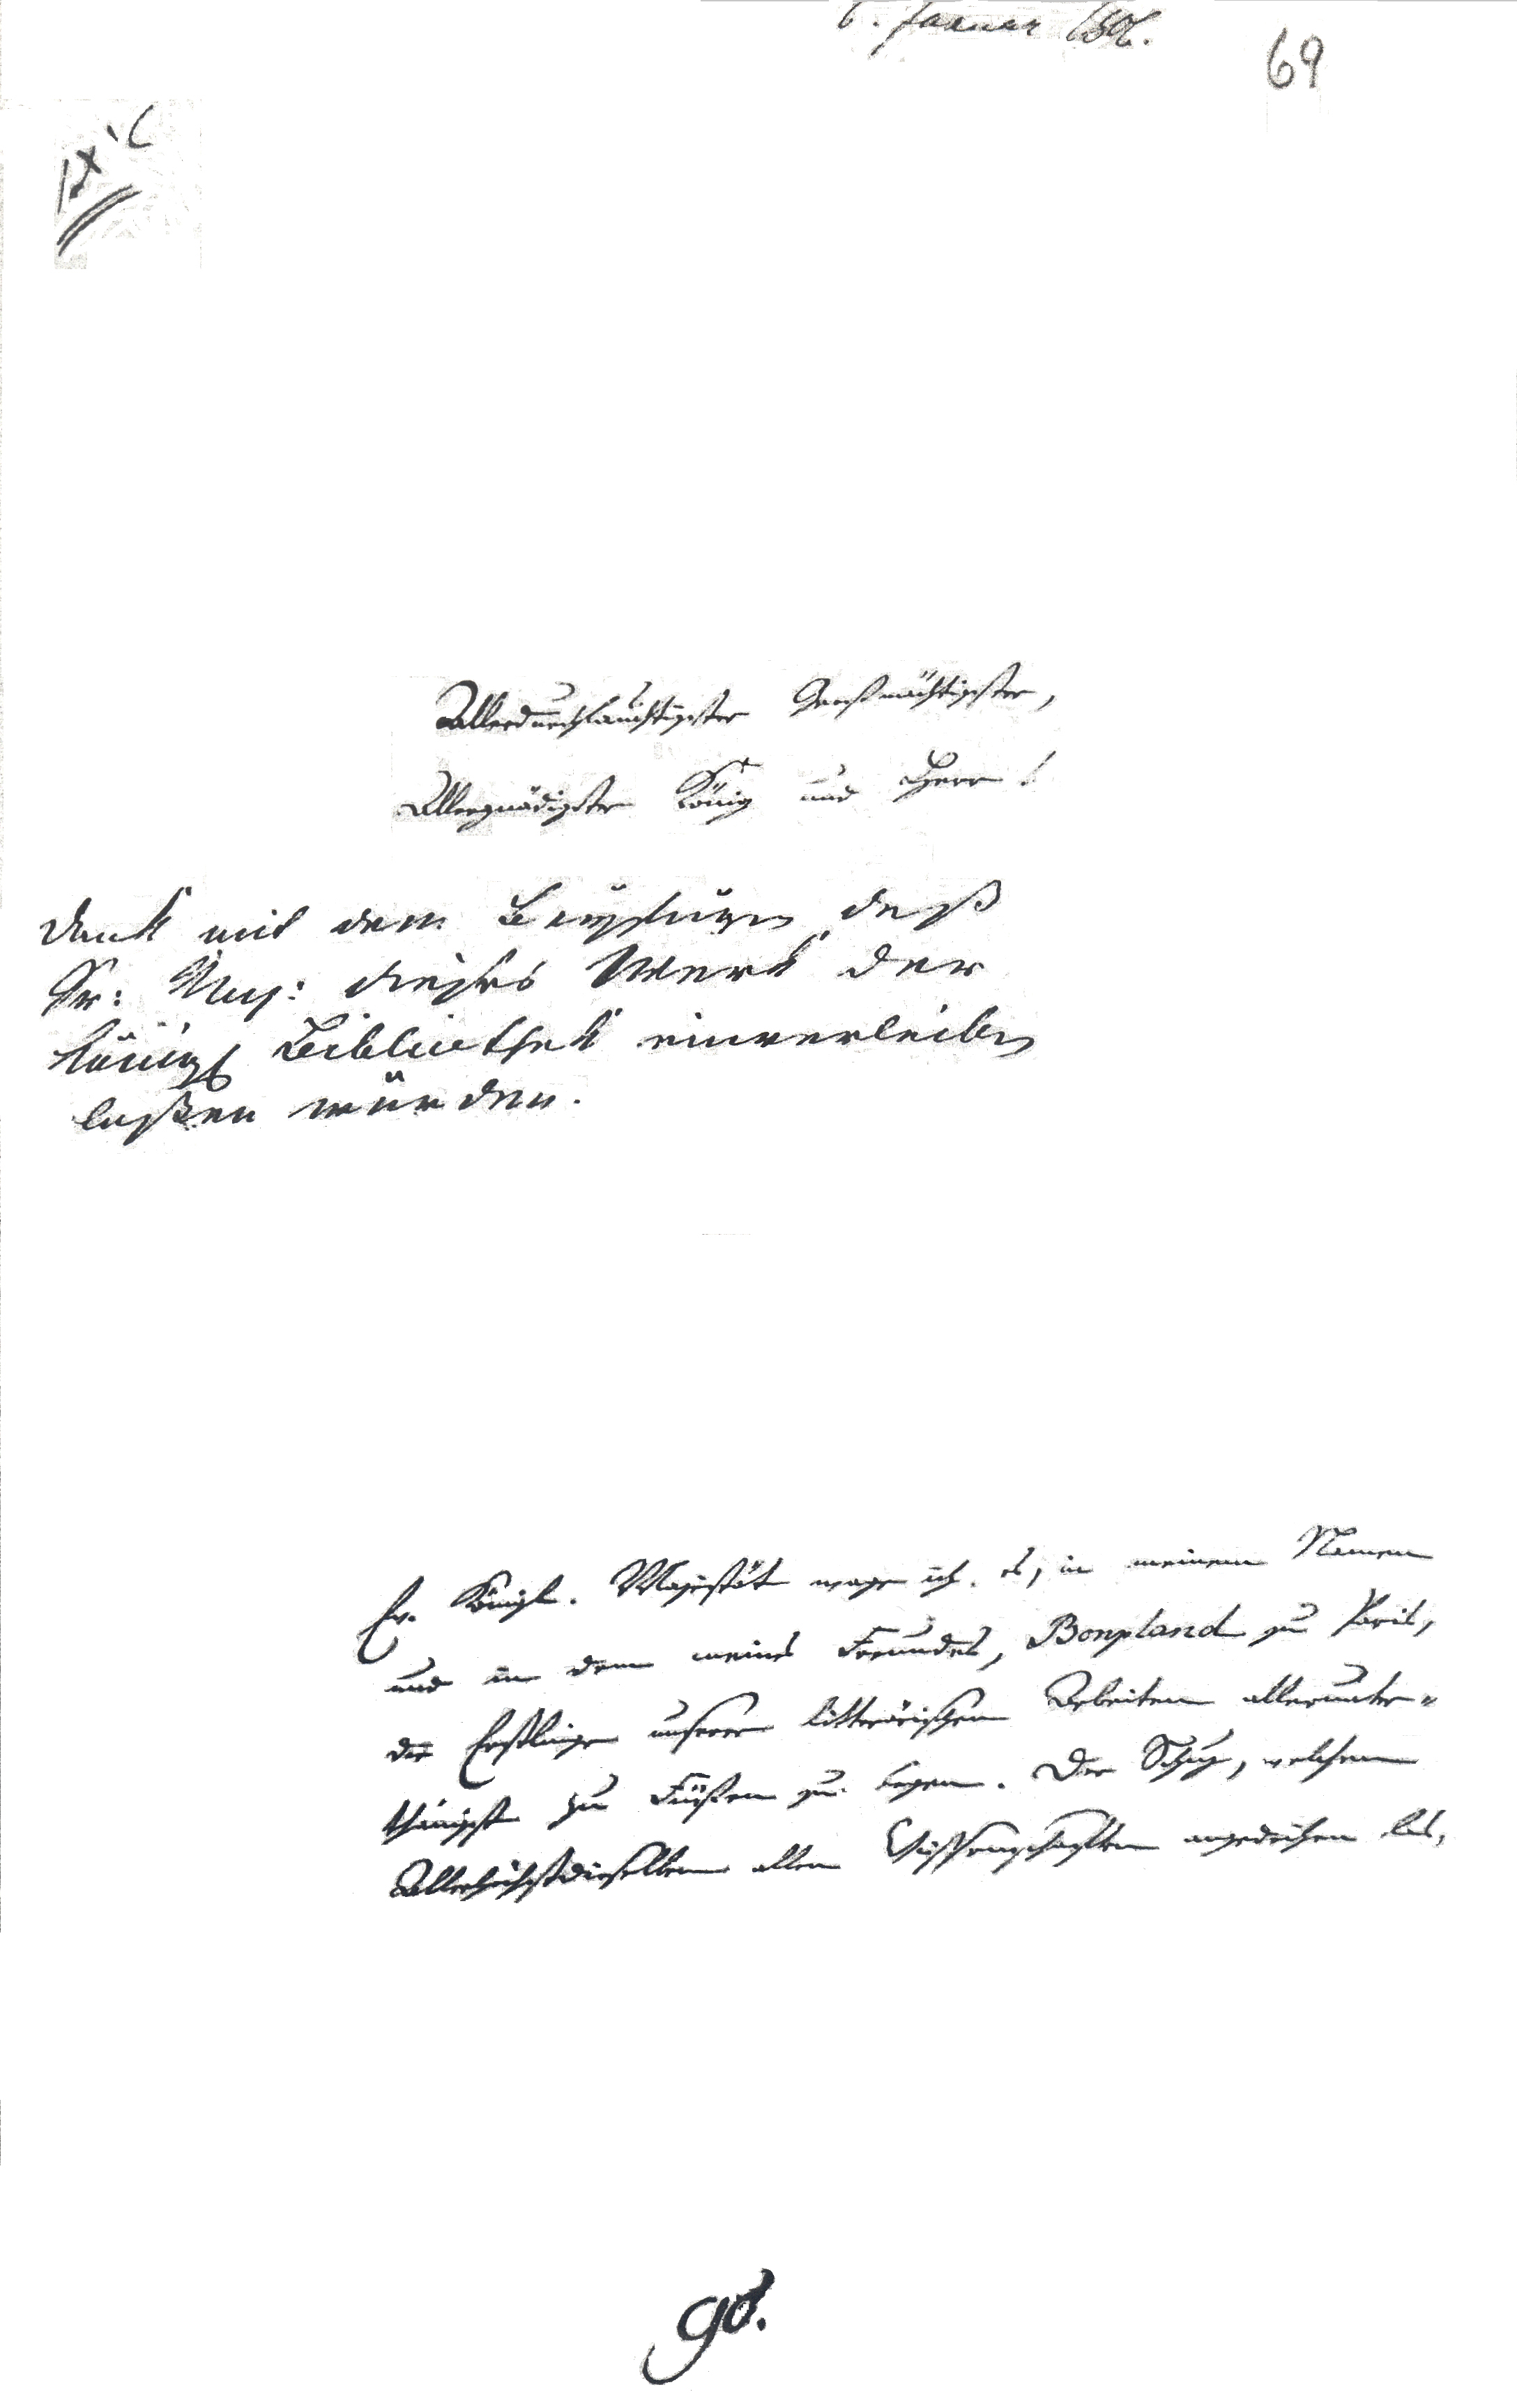 6. Januar 1806.
69
Allerdurchlauchtigster Großmächtigster,
Allergnädigster König und Herr!
Dank mit dem Beyfügen daß
Sr: Maj: dieses Werk der
Königl Bibliothek einverleiben
laßen würden.
Ew. Königl. Majestät wage ich es, in meinem Namen
und in dem meines Freundes, Bonpland zu Paris,
die Erstlinge unserer litterärischen Arbeiten allerunter-
thänigst zu Füßen zu legen. Der Schuz, welchen
Allerhöchstdieselben allen Wissenschaften angedeihen las,
gd.